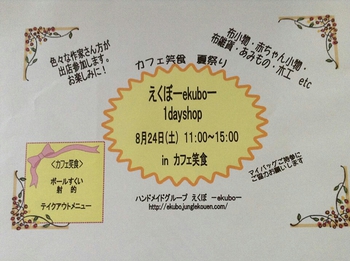 色々な作家さん方が
出店参加します。
お楽しみに!
カフェ笑食 夏祭り
布小物・赤ちゃん小物・
布雑貨・あみもの・木工 etc
えくぼーekuboー
1dayshop
8月24日(土) 11:00~15:00
in カフェ笑食
<カフェ笑食>
ボールすくい
射的
テイクアウトメニュー
マイバッグご持参に
ご協力お願いします
ハンドメイドグループ えくぼ ーekuboー
http://ekubo.junglekouen.com/